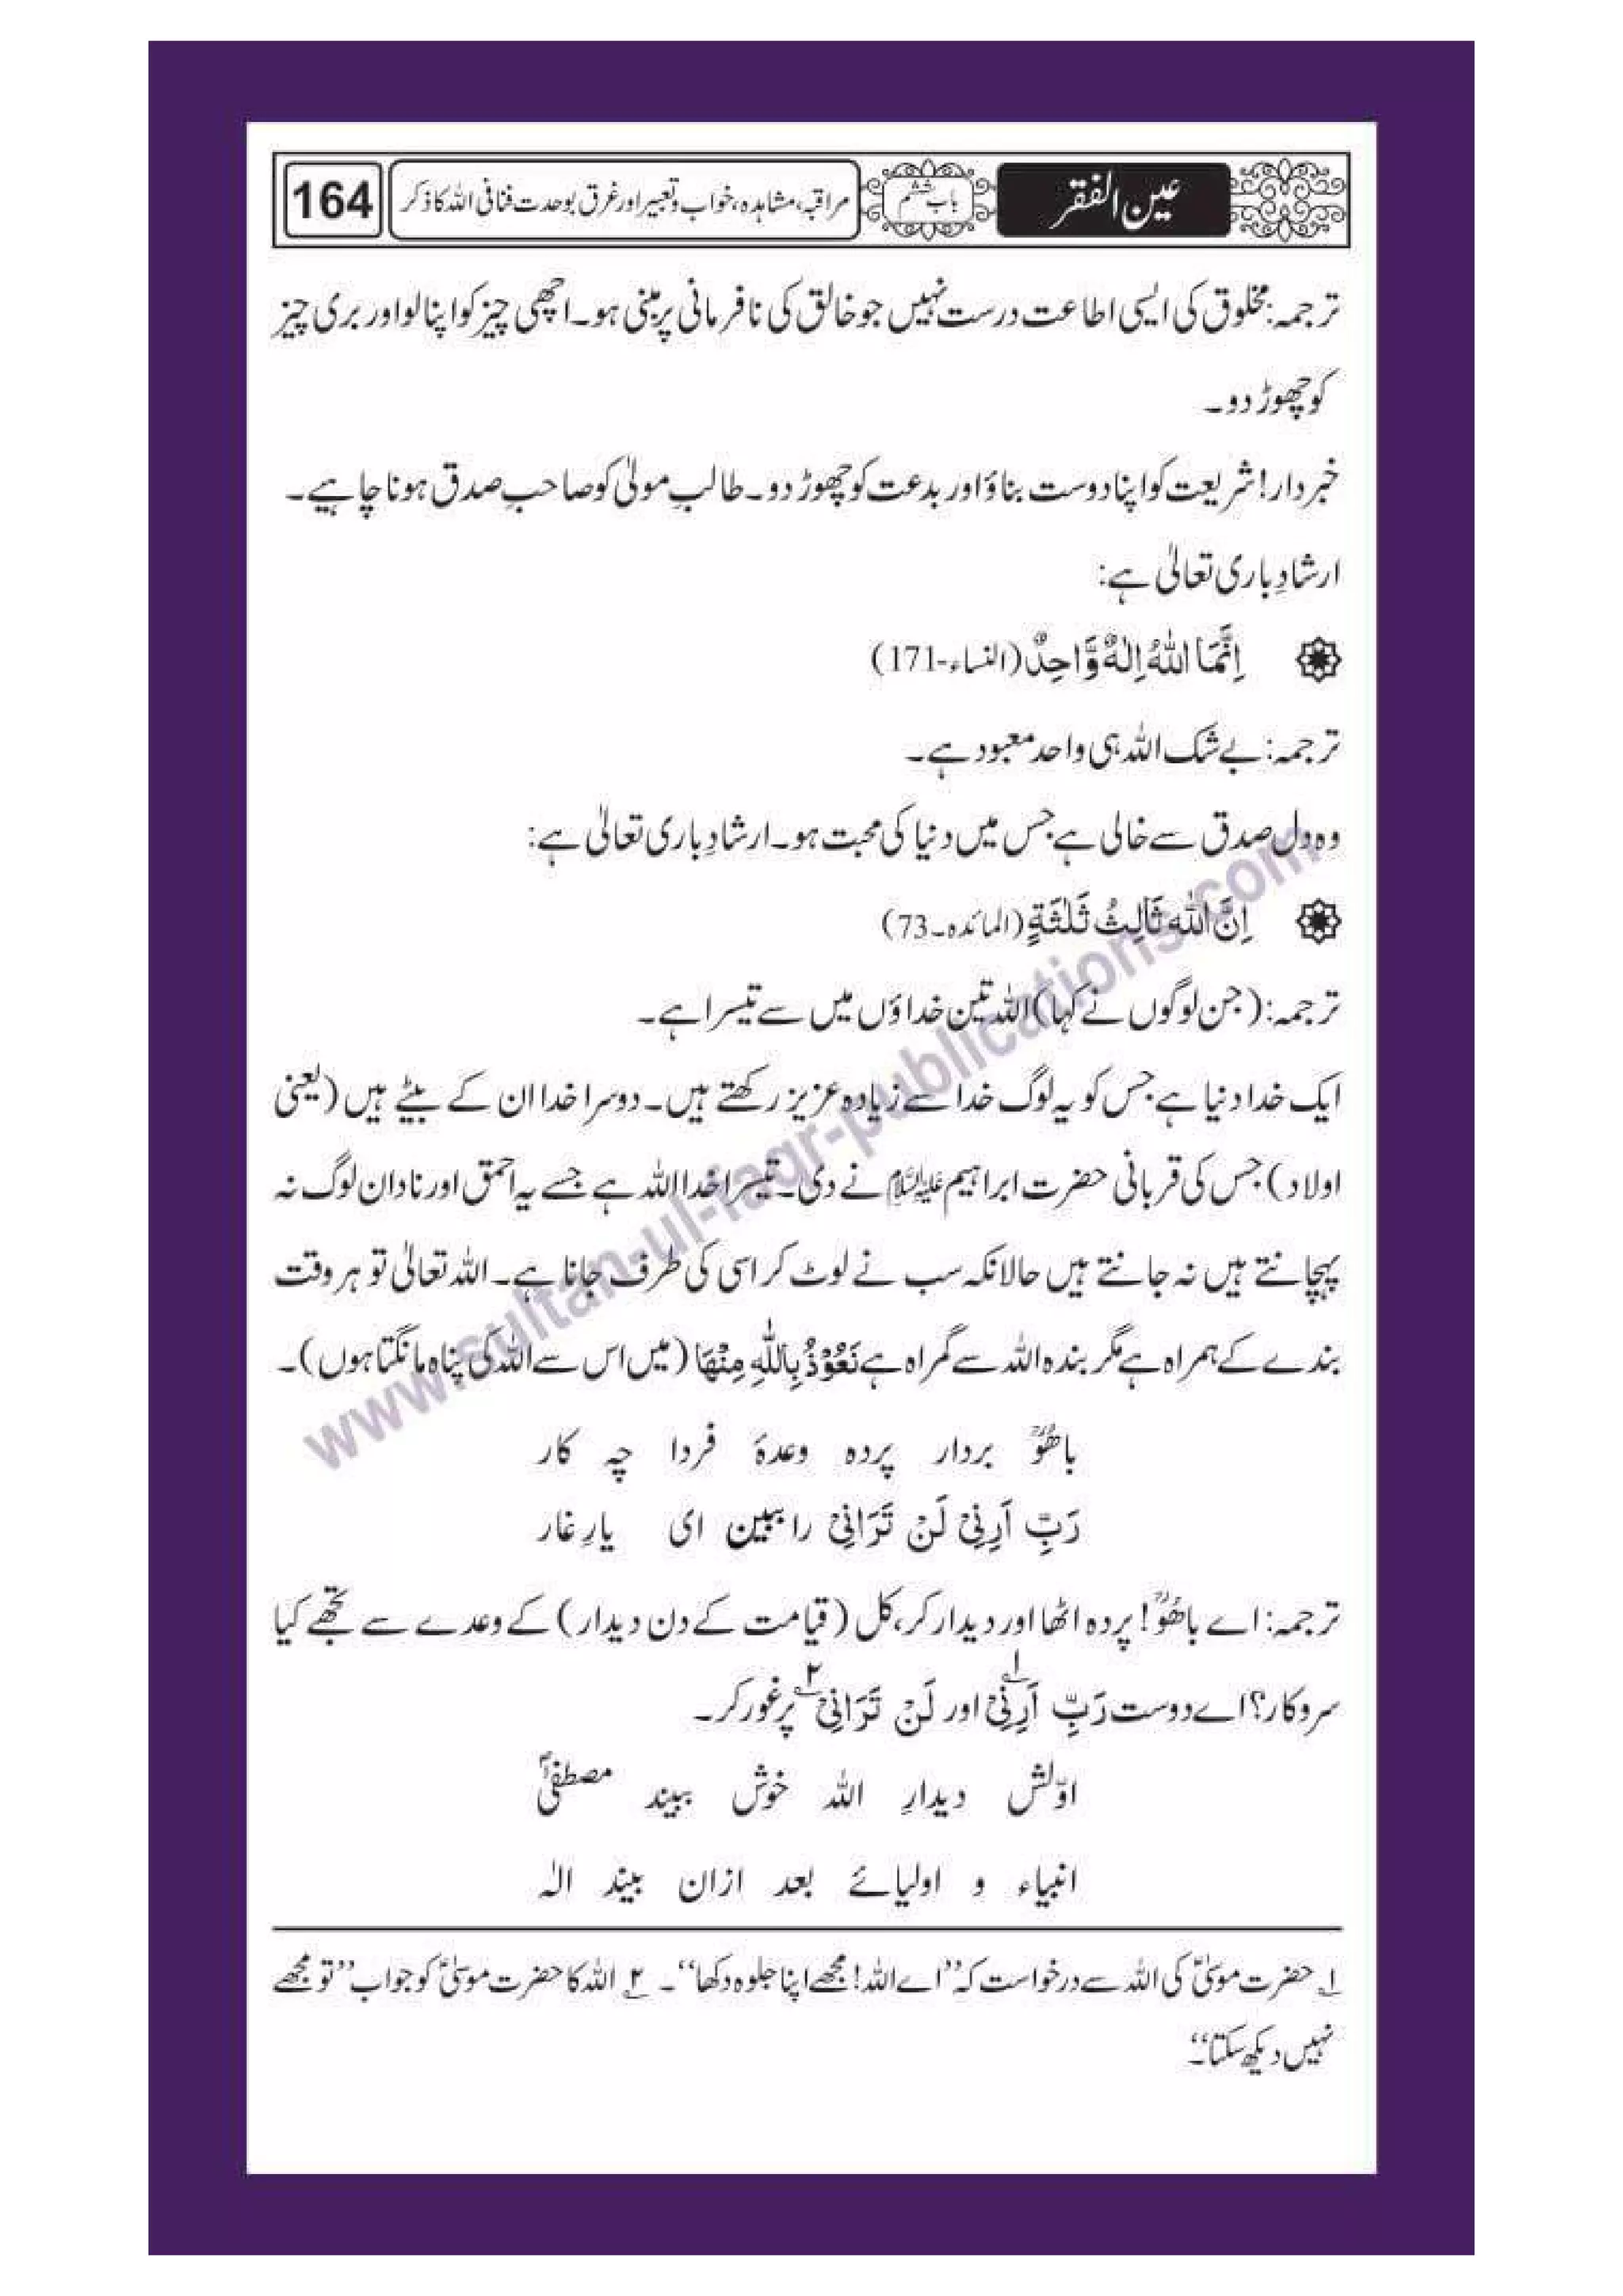 عین الفقر باب ششم مراقبہ، مشاہدہ، خواب و تعبیر اور غرق بوحدت فنا فی اللہ کا ذکر 164
ترجمہ: مخلوق کی ایسی اطاعت درست نہیں جو خالق کی نافرمانی پر مبنی ہو۔ اچھی چیز کو اپنا لو اور بری چیز
کو چھوڑ دو۔
خبردار! شریعت کو اپنا دوست بناؤ اور بدعت کو چھوڑ دو۔ طالبِ مولیٰ کو صاحبِ صدق ہونا چاہیے۔
ارشادِ باری تعالیٰ ہے:
اِنَّمَا اللّٰهُ اِلٰهٌ وَّاحِدٌ (النساء-171)
ترجمہ: بے شک اللہ ہی واحد معبود ہے۔
وہ دل صدق سے خالی ہے جس میں دنیا کی محبت ہو۔ ارشادِ باری تعالیٰ ہے:
اِنَّ اللّٰهَ ثَالِثُ ثَلٰثَةٍ (المائدہ۔73)
ترجمہ: (جن لوگوں نے کہا) اللہ تین خداؤں میں سے تیسرا ہے۔
ایک خدا دنیا ہے جس کو یہ لوگ خدا سے زیادہ عزیز رکھتے ہیں۔ دوسرا خدا ان کے بیٹے ہیں (یعنی
اولاد) جس کی قربانی حضرت ابراہیم علیہ السلام نے دی۔ تیسرا خدا اللہ ہے جسے یہ احمق اور نادان لوگ نہ
پہچانتے ہیں نہ جانتے ہیں حالانکہ سب نے لوٹ کر اسی کی طرف جانا ہے۔ اللہ تعالیٰ تو ہر وقت
بندے کے ہمراہ ہے مگر بندہ اللہ سے گمراہ ہے نَعُوْذُ بِاللّٰهِ مِنْهَا (میں اس سے اللہ کی پناہ مانگتا ہوں)۔
باھُوؒ بردار پردہ وعدۂ فردا چہ کار
رَبِّ اَرِنِیْ لَنْ تَرَانِیْ را ببین ای یارِ غار
ترجمہ: اے باھُوؒ! پردہ اٹھا اور دیدار کر، کل (قیامت کے دن دیدار) کے وعدے سے تجھے کیا
سروکار؟ اے دوست رَبِّ اَرِنِیْ ۱ اور لَنْ تَرَانِیْ ۲ پر غور کر۔
اوّلش دیدارِ اللہ خوش ببیند مصطفیؐ
انبیاء و اولیائے بعد ازان بیند الٰہ
۱ حضرت موسیٰؑ کی اللہ سے درخواست کہ ’’اے اللہ! مجھے اپنا جلوہ دکھا‘‘۔ ۲ اللہ کا حضرت موسیٰؑ کو جواب ’’تو مجھے
نہیں دیکھ سکتا‘‘۔
www.sultan-ul-faqr-publications.com